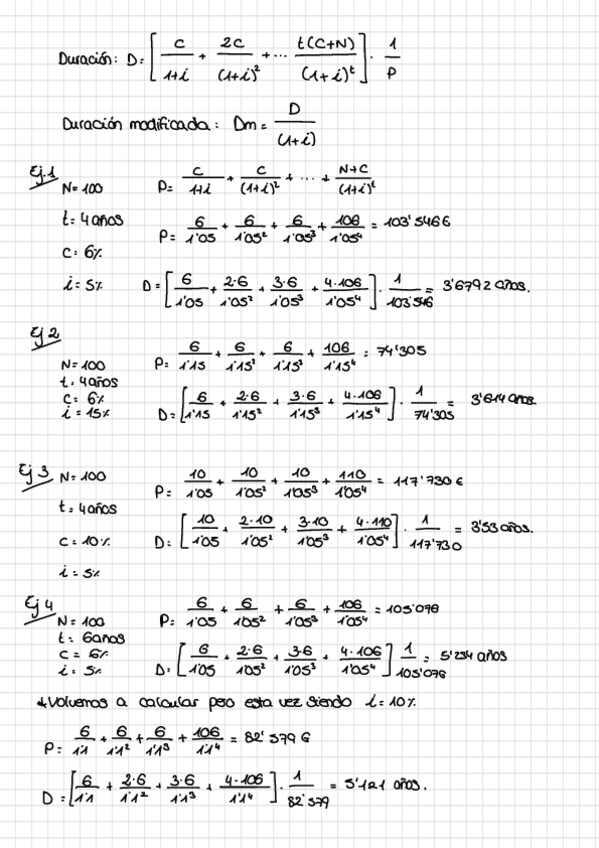 Duración: D = [ C/1+i + 2C/(1+i)² + ... t(C+N)/(1+i)^t ] · 1/P
Duración modificada: Dm = D/(1+i)
Ej.1
N = 100 P = C/1+i + C/(1+i)² + ... + N+C/(1+i)^t
t = 4 años P = 6/1'05 + 6/1'05² + 6/1'05³ + 106/1'05⁴ = 103'5466
C = 6%
i = 5% D = [ 6/1'05 + 2·6/1'05² + 3·6/1'05³ + 4·106/1'05⁴ ] · 1/103'546 = 3'6792 años.
Ej 2
N = 100 P = 6/1'15 + 6/1'15² + 6/1'15³ + 106/1'15⁴ = 74'305
t = 4 años
C = 6%
i = 15% D = [ 6/1'15 + 2·6/1'15² + 3·6/1'15³ + 4·106/1'15⁴ ] · 1/74'305 = 3'614 años.
Ej 3 N = 100 P = 10/1'05 + 10/1'05² + 10/1'05³ + 110/1'05⁴ = 117'730 €
t = 4 años
C = 10% D = [ 10/1'05 + 2·10/1'05² + 3·10/1'05³ + 4·110/1'05⁴ ] · 1/117'730 = 3'53 años.
i = 5%
Ej 4
N = 100 P = 6/1'05 + 6/1'05² + 6/1'05³ + 106/1'05⁴ = 105'076
t = 6 años
C = 6%
i = 5% D = [ 6/1'05 + 2·6/1'05² + 3·6/1'05³ + 4·106/1'05⁴ ] 1/105'076 = 5'234 años
* Volvemos a calcular pero esta vez siendo i = 10%
P = 6/1'1 + 6/1'1² + 6/1'1³ + 106/1'1⁴ = 82'579 €
D = [ 6/1'1 + 2·6/1'1² + 3·6/1'1³ + 4·106/1'1⁴ ] · 1/82'579 = 5'121 años.